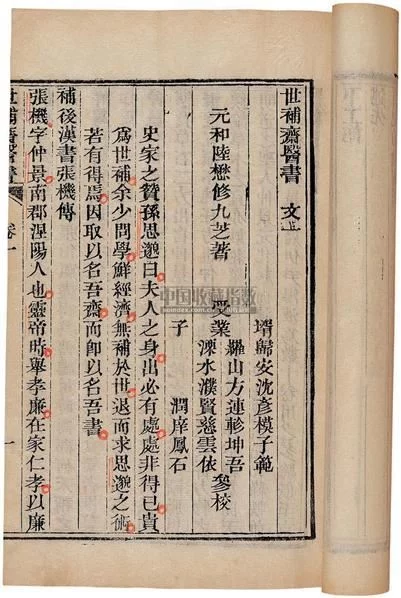 世補齋醫書 文一
壻歸安沈彥模子範
羅山方連軫坤吾
元和陸懋修九芝著 受業 參校
溧水濮賢慈雲依
子 潤庠鳳石
史家之贊孫思邈曰夫人之身出必有處處非得已貴
爲世補余少問學鮮經濟無補於世退而求思邈之術
若有得焉因取以名吾齋而即以名吾書
補後漢書張機傳
張機字仲景南郡涅陽人也靈帝時舉孝廉在家仁孝以廉
世補齋醫書
卷一
一
中国收藏指数